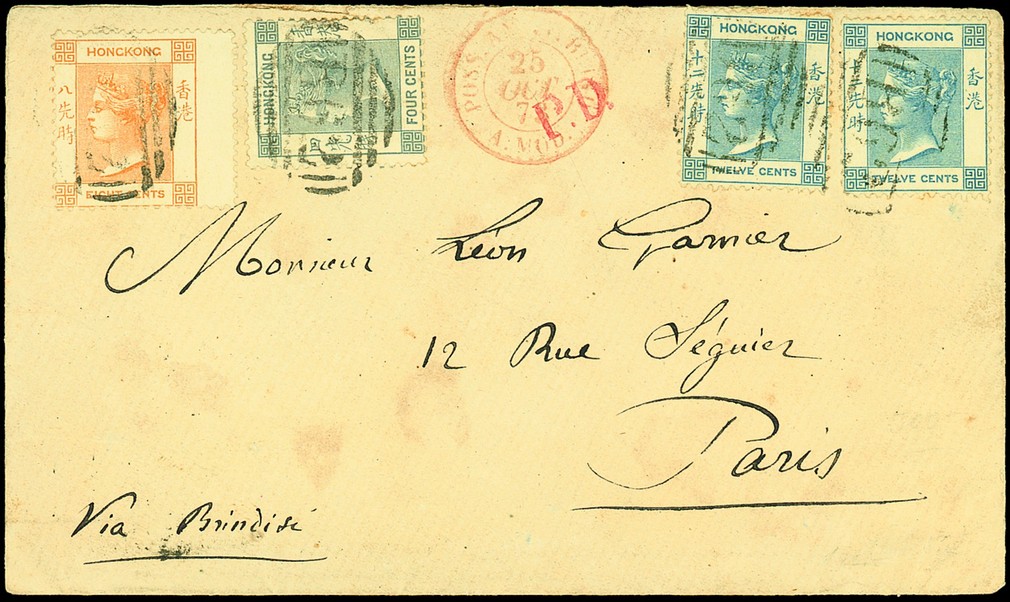 HONGKONG
香港
八先時
EIGHT CENTS
HONGKONG
FOUR CENTS
香港
四
25
OCT
7
A. MOD.
P.D.
HONGKONG
香港
十二先時
TWELVE CENTS
HONGKONG
香港
時
TWELVE CENTS
Monsieur Léon Garnier
12 Rue Séguier
Paris
Via Brindisi